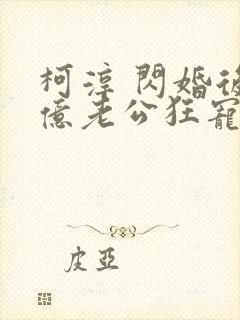 柯淳 閃婚後
億老公狂寵
皮亞